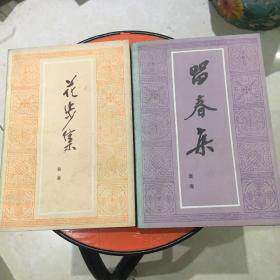 花步集
留春集